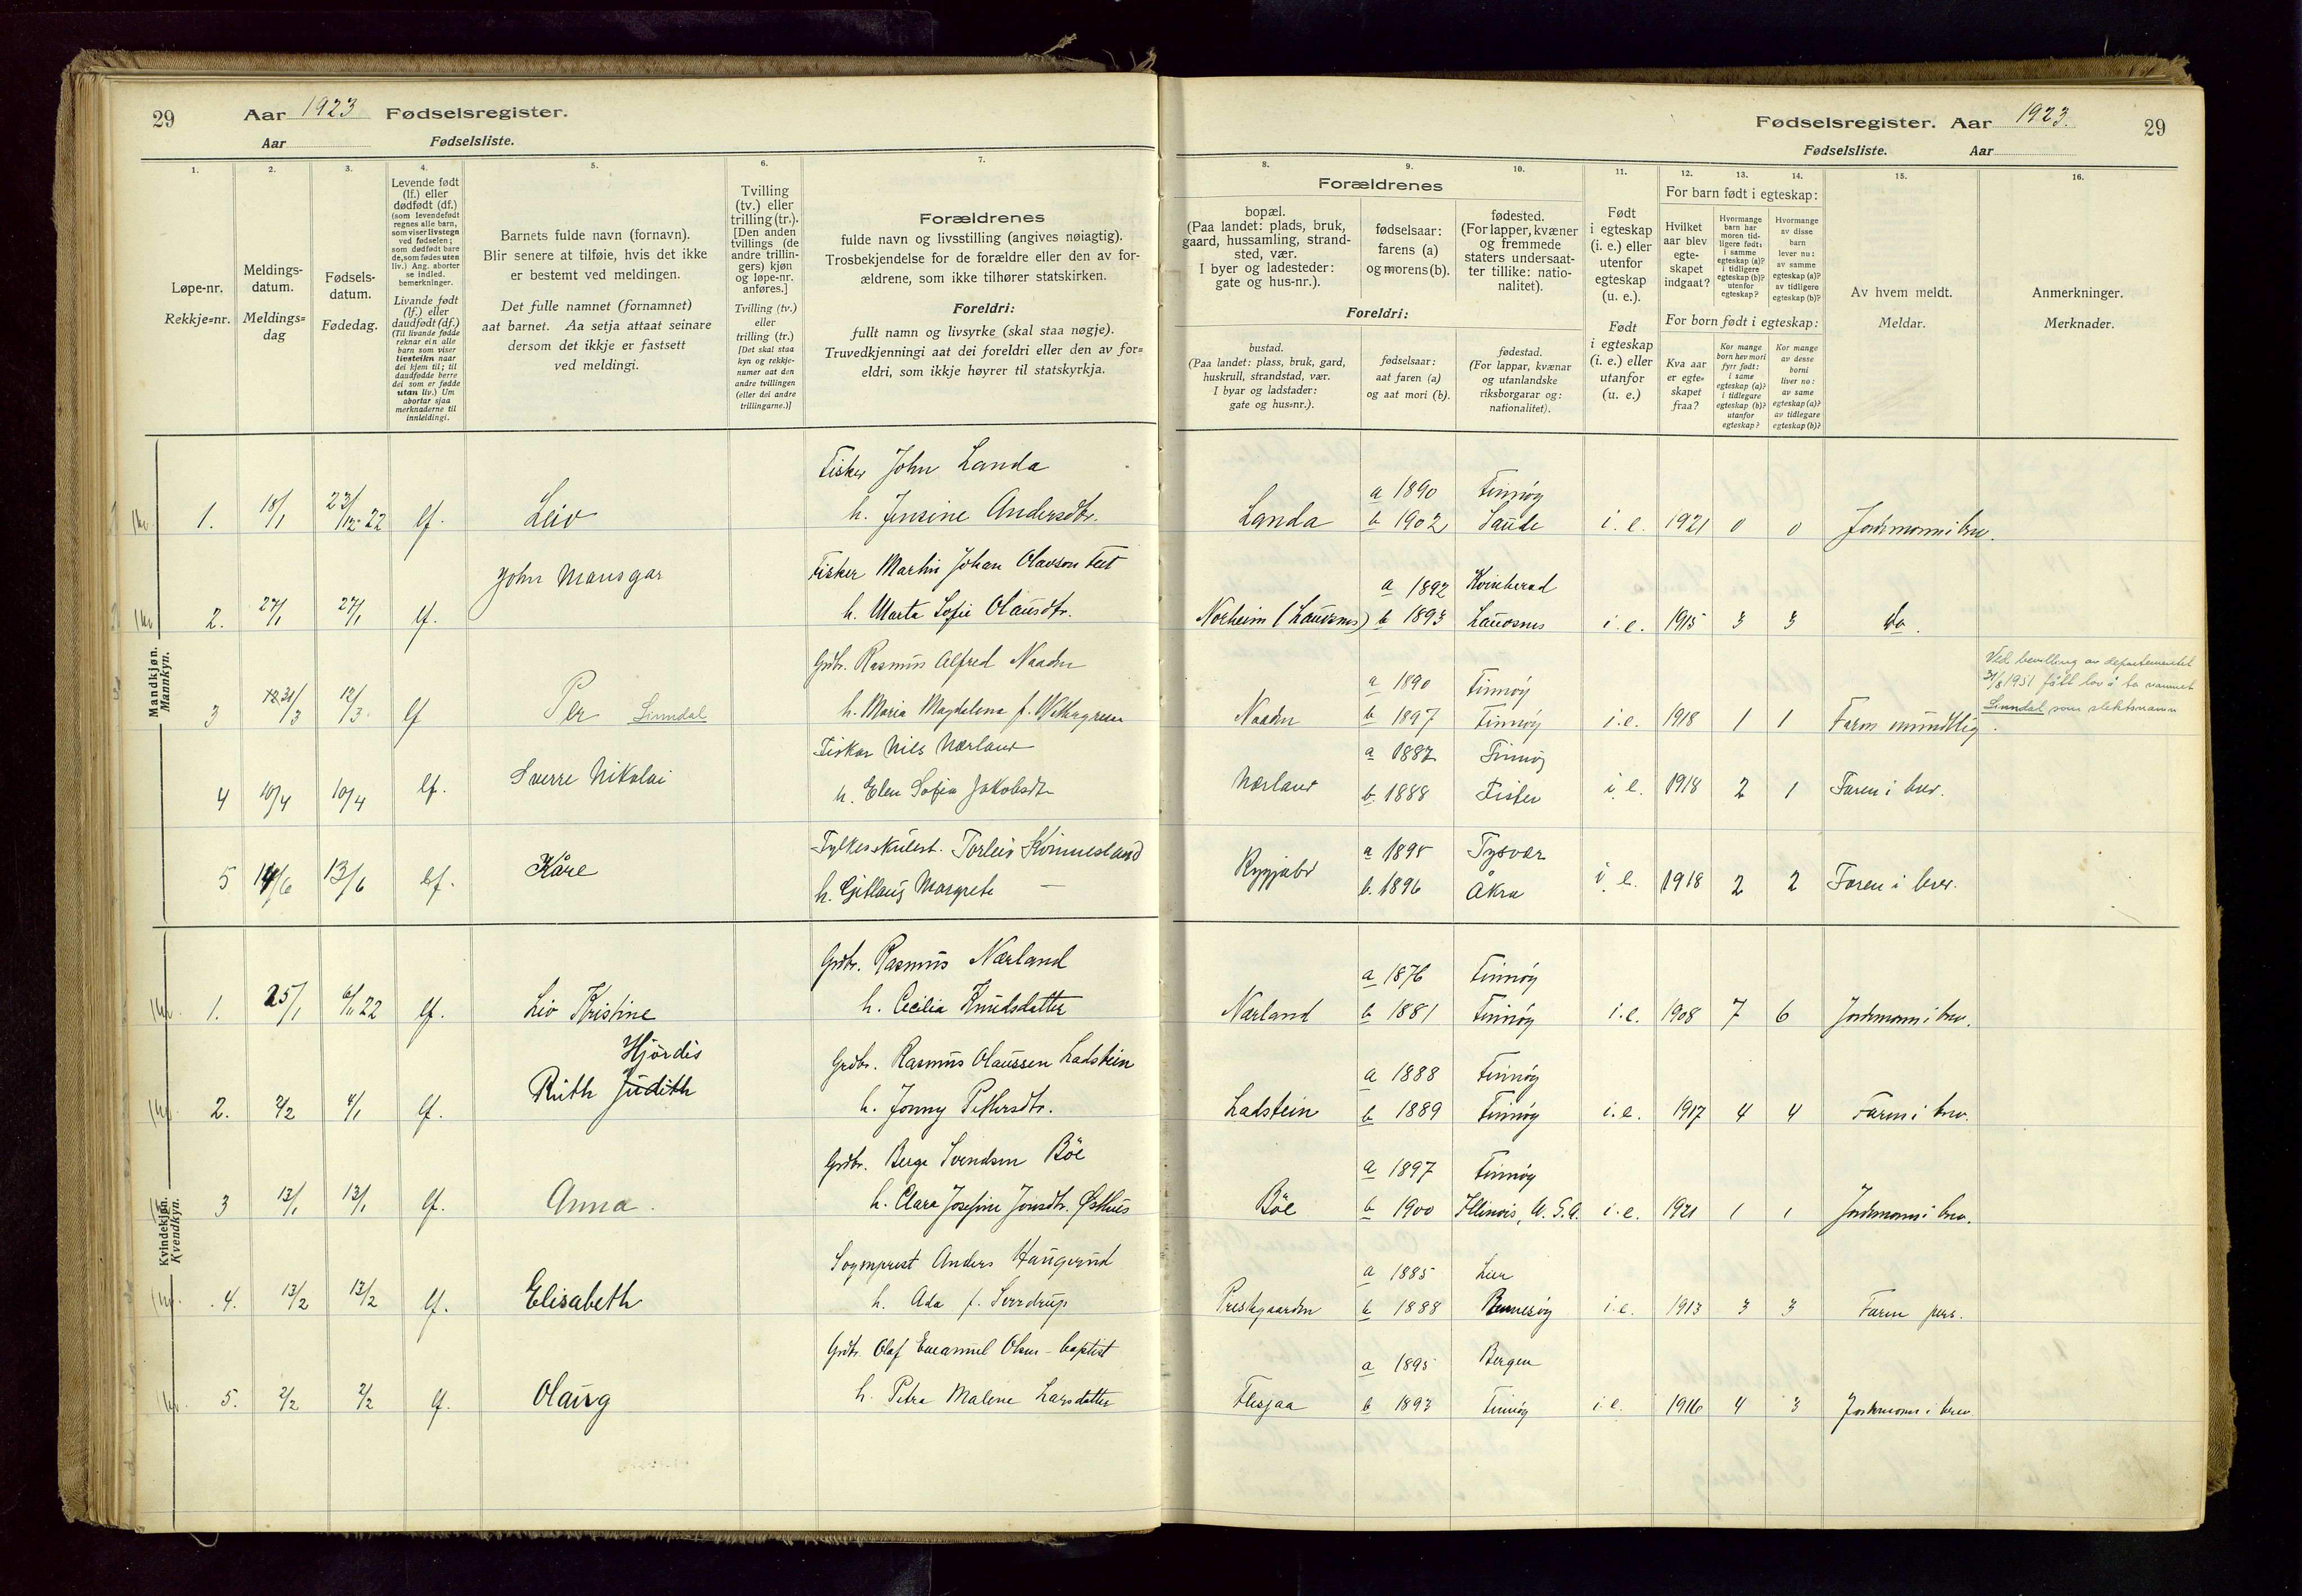 29 Aar 1923 Fødselsregister.
Aar Fødselsliste.
1. 2. 3. 4. 5. 6. 7.
Løpe-nr.
Rekkje=nr.
Meldings-
datum.
Meldings=
dag
Fødsels-
datum.
Fødedag.
Levende født
(lf.) eller
dødfødt (df.)
(som levendefødt
regnes alle barn,
som viser livstegn
ved fødselen;
som dødfødt bare
de, som fødes uten
liv.) Ang. aborter
se indled.
bemerkninger.
Livande født
(lf.) eller
daudfødt (df.)
(Til livande fødde
reknar ein alle
barn som viser
livsteikn naar
dei kjem til; til
daudfødde berre
dei som er fødde
utan liv.) Um
abortar sjaa
merknaderne til
innleidingi.
Barnets fulde navn (fornavn).
Blir senere at tilføie, hvis det ikke
er bestemt ved meldingen.
Det fulle namnet (fornamnet)
aat barnet. Aa setja attaat seinare
dersom det ikkje er fastsett
ved meldingi.
Tvilling
(tv.) eller
trilling (tr.).
[Den anden
tvillings (de
andre trillin-
gers) kjøn
og løpe-nr.
anføres.]
Tvilling (tv.)
eller
trilling (tr.)
[Det skal staa
kyn og rekkje-
numer aat den
andre tvillingen
(eller dei andre
trillingarne.)]
Forældrenes
fulde navn og livsstilling (angives nøiagtig).
Trosbekjendelse for de forældre eller den av for-
ældrene, som ikke tilhører statskirken.
Foreldri:
fullt namn og livsyrke (skal staa nøgje).
Truvedkjenningi aat dei foreldri eller den av for=
eldri, som ikkje høyrer til statskyrkja.
Mandkjøn.
Mannkyn.
Fisker John Landa
1. 18/1 23/12-22 lf. Leiv h. Jensine Andersdtr.
John Mansgar Fisker Martin Johan Olavson Teit
2. 27/1 27/1 lf. h. Marta Sofie Olausdtr.
Grdbr. Rasmus Alfred Naaden
3 31/3 12/3 lf Per Linndal h. Maria Magdalena f.
Fisker Nils Nærland
4 10/4 10/4 lf. Sverre Nikolai h. Elen Sofia Jakobsdtr
Fylkesskulest. Torleiv Kvinnesland
5 14/6 13/6 lf. Kåre h. Gjitlaug Margrete —
Kvindekjøn.
Kvendkyn.
Grdbr. Rasmus Nærland
1. 25/1 6/11 22 lf. Liv Kristine h. Cecilia Knudsdatter
Hjördis Grdbr. Rasmus Olaussen Ladstein
2. 2/2 4/1 lf. Ruth Judith h. Jonny Pettersdtr.
Grdbr. Berge Svendsen Böe
3 13/1 13/1 lf. Anna. h. Clara Josefine Jonsdtr. Østhus
Sogneprest Anders Haugerud
4. 13/2 13/2 lf. Elisabeth h. Ada f. Sverdrup
Grdbr. Olaf Emanuel Olsen - baptist
5. 2/2 2/2 lf. Olaug h. Petra Malene Larsdatter
Fødselsregister. Aar 1923. 29
Fødselsliste. Aar
8. 9. 10. 11. 12. 13. 14. 15. 16.
Forældrenes
bopæl.
(Paa landet: plads, bruk,
gaard, hussamling, strand-
sted, vær.
I byer og ladesteder:
gate og hus-nr.).
fødselsaar:
farens (a)
og morens (b).
fødested.
(For lapper, kvæner
og fremmede
staters undersaat-
ter tillike: natio-
nalitet).
Foreldri:
bustad.
(Paa landet: plass, bruk, gard,
huskrull, strandstad, vær.
I byar og ladstader:
gate og hus=nr.).
fødselsaar:
aat faren (a)
og aat mori (b).
fødestad.
(For lappar, kvænar
og utanlandske
riksborgarar og:
nationalitet).
Født
i egteskap
(i. e.) eller
utenfor
egteskap
(u. e.).
Født
i egteskap
(i. e.) eller
utanfor
(u. e.)
For barn født i egteskap:
Hvilket
aar blev
egte-
skapet
indgaat?
Hvormange
barn har
moren tid-
ligere født:
i samme
egteskap (a)?
i tidligere
egteskap (b)?
utenfor
egteskap?
Hvormange
av disse
barn
lever nu:
av samme
egteskap (a)?
av tidligere
egteskap (b)?
For born født i egteskap:
Kva aar
er egte-
skapet
fraa?
Kor mange
born hev mori
fyrr født:
i same
egteskap (a)?
i tidlegare
egteskap (b)?
utanfor
egteskap?
Kor mange
av desse
borni
liver no:
av same
egteskap (a)?
av tidlegare
egteskap (b)?
Av hvem meldt.
Meldar.
Anmerkninger.
Merknader.
a 1890 Finnöy
Landa b 1902 Saude i. e. 1921 0 0 Jordmorm i brev.
a 1892 Kvinherad
Norheim (Lauvsnes) b 1893 Lauvsnes i. e. 1915 3 3 do.
Ved bevilling av departementet
31/8 1951 fått lov å ta navnet
Linndal som slektsnamn
a 1890 Finnöy
Naaden b 1897 Finnöy i. e. 1918 1 1 Faren mundtlig.
a 1887 Finnöy
Nærland b. 1888 Fister i. e. 1918 2 1 Faren i brev.
a 1895 Tysvær
b. 1896 Åkra i. e. 1918 2 2 Faren i brev.
a 1876 Finnöy
Nærland b 1881 Finnöy i. e. 1908 7 6 Jordmorm i brev.
a 1888 Finnöy
Ladstein b 1889 Finnöy i. e. 1917 4 4 Faren i brev.
a 1897 Finnöy
Böe b 1900 Illinois, U. S. A. i. e. 1921 1 1 Jordmorm i brev.
a 1885 Lier
Prestgaarden b 1888 Rennesöy i. e. 1913 3 3 Faren pers.
a 1895 Bergen
Flesjaa b 1893 Finnöy i. e. 1916 4 3 Jordmorm i brev